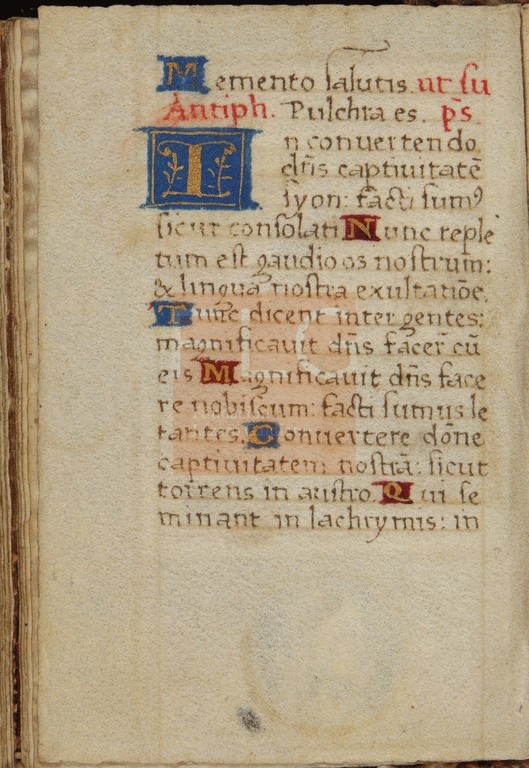 Memento salutis ut su
Antiph. Pulchra es. p̄s
In conuertendo
dn̄s captiuitatē
syon: facti sumꝰ
sicut consolati Nunc reple
tum est gaudio os nostrum:
& lingua nostra exultatiōe.
Tunc dicent inter gentes:
magnificauit dn̄s facer̄ cū
eis Magnificauit dn̄s face
re nobiscum: facti sumus le
tantes. Conuertere dōne
captiuitatem nostrā: sicut
torrens in austro. Qui se
minant in lachrymis: in